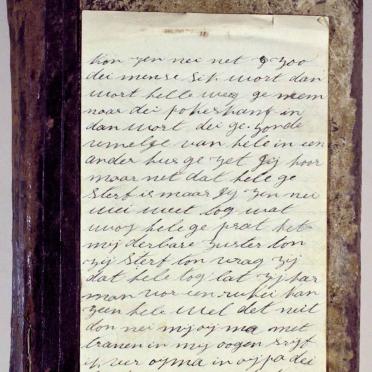 kon zen nei net zoo
dei mense sik wort dan
wort helle weg ge neem
naar dei in
dan wort dei ge zonde
van hele in een
ander huis ge zet Jij hoor
maar net dat hele ge
sterf is maar Jij zen nei
wei weet tog wat
nog hele ge prat het
mij derbare zuster ton
zij sterf ton vrag zij
dat hele tog lat zij par
man vor een van
zeen hele wel det nit
don nei mij oij ma met
tranen in mij oogen
ik ver oijma in oijpa dei